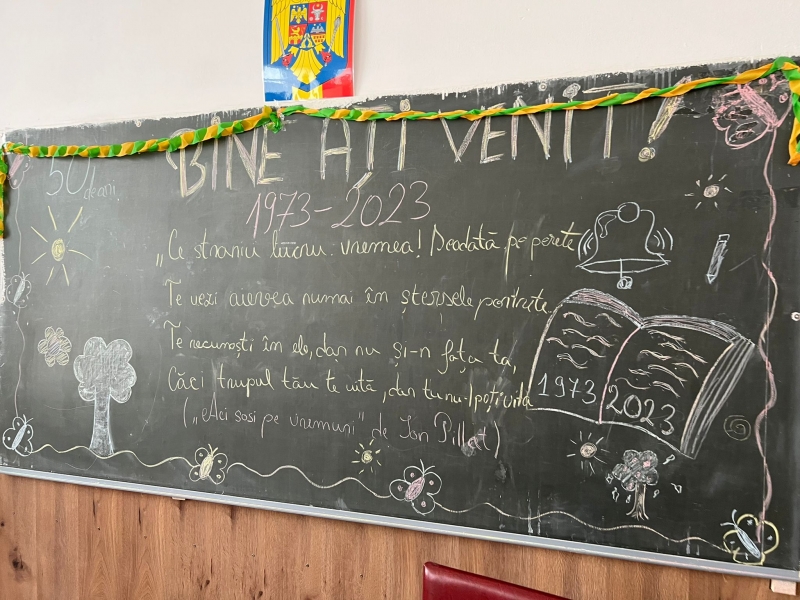 BINE AȚI VENIT!
50 de ani
1973-2023
„Ce straniu lucru: vremea! Deodată pe perete
Te vezi aievea numai în ștersele portrete
Te recunoști în ele, dar nu și-n fața ta,
Căci trupul tău te uită, dar tu nu-l poți uita
(„Aci sosi pe vremuri" de Ion Pillat)
1973 2023